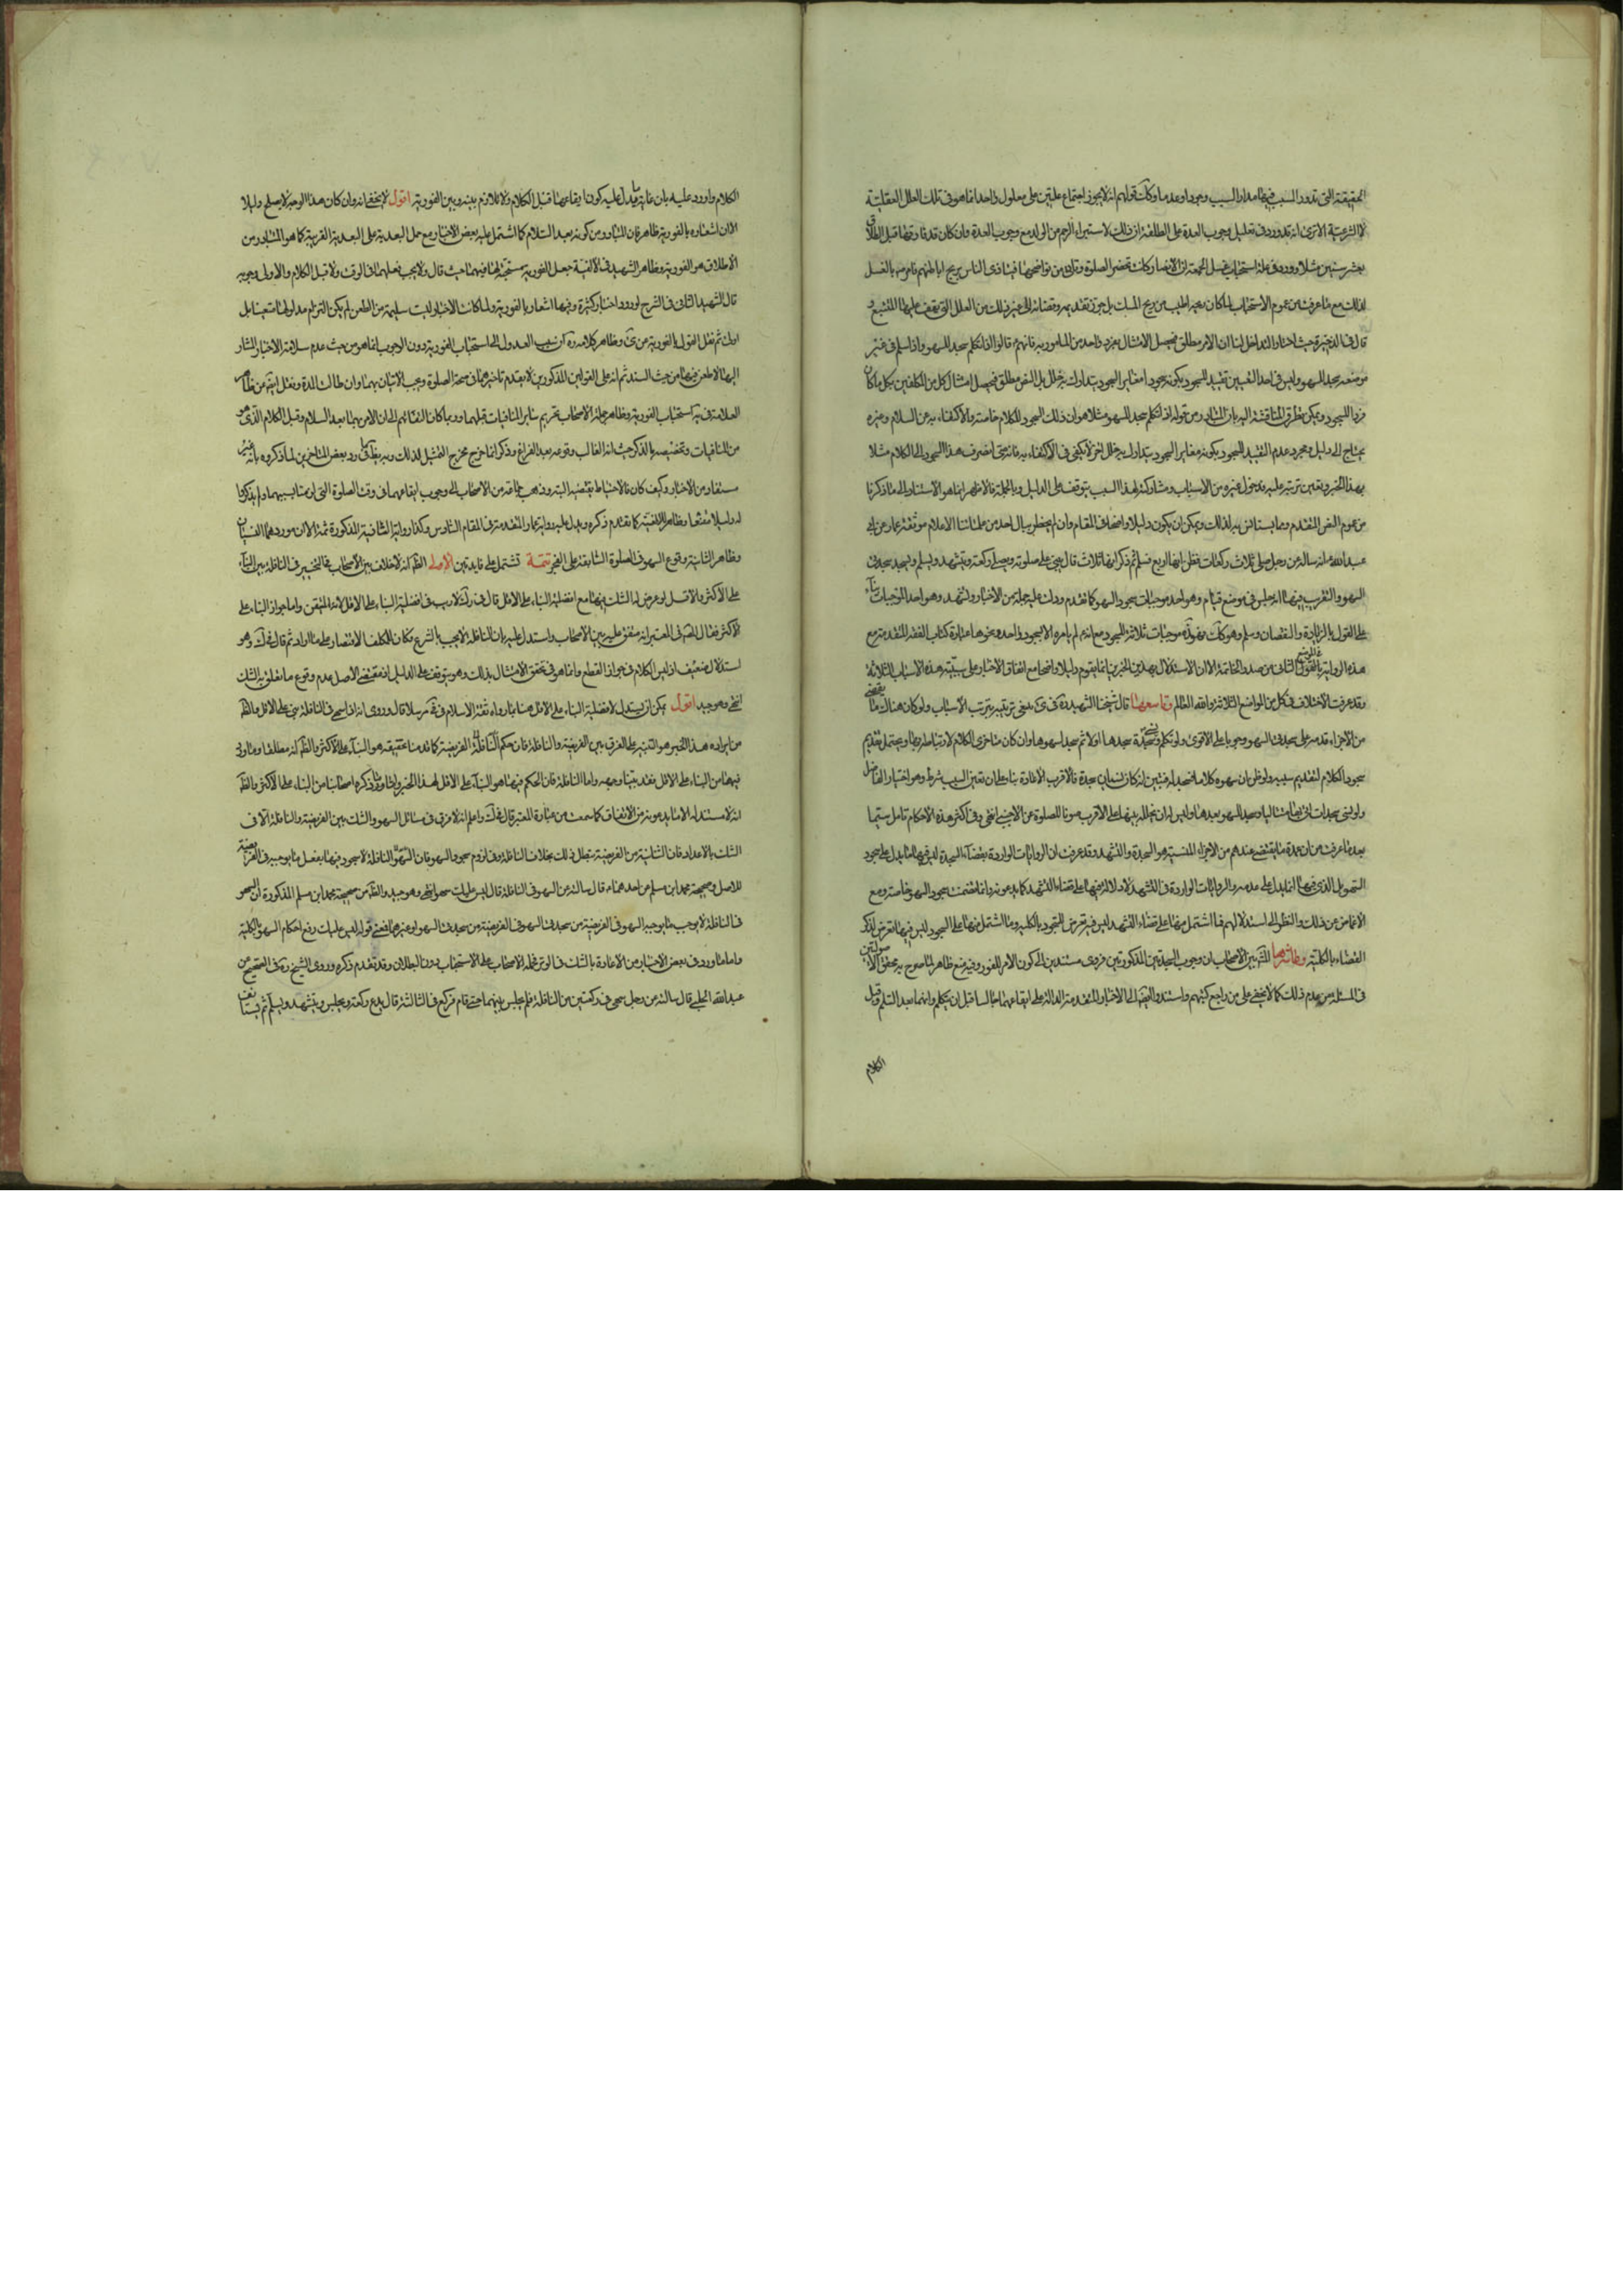 الحقيقية التي تدور السبب فيها مدار السبب وجودا وعدما وكانت قولهم انه لا يجوز اجتماع علتين على معلول واحد انما هو في تلك العلل العقلية
لا الشرعية الا ترى انه قد ورد في تعليل وجوب العدة على المطلقة ان ذلك لاستبراء الرحم من الولد مع وجوب العدة وان كان قد فارقها قبل الطلاق
بعشر سنين مثلا وورد في علة استحباب غسل الجمعة ان الانصار كانت تحضر الصلوة وتاتي من نواضحها فيتاذى الناس بريح اباطهم فامرهم بالغسل
لذلك مع ما عرفت من عموم الاستحباب لمن كان بدنه اطيب من ريح المسك بل جواز تقديمه وقضائه الى غير ذلك من العلل التي يقف عليها المتتبع و
قال في الذخيرة حيث اختار التداخل لنا ان الامر مطلق فيحصل الامتثال بفرد واحد من المامور به فانهم قالوا اذا تكلم سجد للسهو واذا سلم في غير
موضعه سجد للسهو وليس في احد النصين تقييد السجود بكونه سجودا مغاير السجود يتدارك به خلل بل النص مطلق فيحصل امتثال كل من التكليفين بكل ما كان
فردا للسجود ويمكن تطرق المناقشة اليه بان المتبادر من قوله اذا تكلم سجد للسهو مثلا هو ان ذلك السجود للكلام خاصة والاكتفاء به عن السلام وغيره
يحتاج الى دليل ومجرد عدم التقييد السجود بكونه مغاير السجود يتدارك به خلل اخر لا يكفي في الاكتفاء به فانه متى انصرف هذا السجود الى الكلام مثلا
بهذا الخبر وتعين ترتبه عليه فدخول غيره من الاسباب ومشاركته لهذا السبب يتوقف على الدليل وبالجملة فالاظهر انما هو الاستناد الى ما ذكرنا
من عموم النص المتقدم ومما يستانس به لذلك ويمكن ان يكون دليلا واضحا في المقام وان لم يخطر ببال احد من علمائنا الاعلام موثقة عمار عن ابي
عبد الله ع انه سأله عن رجل صلى ثلاث ركعات فظن انها اربع فسلم ثم ذكر انها ثلاث قال يبني على صلوته ويصلي ركعة ويتشهد ويسلم ويسجد سجدتي
السهو والتقريب فيها انه جلس في موضع قيام وهو احد موجبات سجود السهو كما تقدم ودلت عليه جملة من الاخبار وتشهد وهو احد الموجبات بناء
على القول بالزيادة والنقصان وسلم وهو كذلك فهذه موجبات ثلاثة للسجود مع انه لم يامره الا بسجود واحد ونحوها عبارة كتاب الفقه المتقدمة مع
هذه الرواية في الموضع الثاني من صدر الخاتمة الا ان الاستدلال بهذين الخبرين انما يقوم دليلا واضحا مع اتفاق الاخبار على سببية هذه الاسباب الثلاثة
وقد عرفت الاختلاف في كل من المواضع الثلاثة والله العالم وتاسعها قال شيخنا الشهيد ره في ينبغي ترتيبه بترتب الاسباب ولو كان هناك ما يقضى
من الاجزاء قدمه على سجدتي السهو وجوبا على الاقوى ولو تكلم ونسي سجدة سجدها اولا ثم سجد لسهوها وان كان متاخرا عن الكلام لارتباطه بها ويحتمل تقديم
سجود الكلام لتقديم سببه ولو ظن بان سهوه كلاما فسجد له فتبين انه كان نسيان سجدة فالاقرب الاعادة بناء على ان تعيين السبب شرط وهو اختيار الفاضل
ولو نسي سجدات اتى بها متتاليا وسجد للسهو بعدها وليس له ان يتخلل بينها على الاقرب صونا للصلوة عن الاجنبي انتهى وفي اكثر هذه الاحكام تامل سيما
بعد ما عرفت من ان عمدة ما يقتضى عندهم من الاجزاء المنسية هو السجدة والتشهد وقد عرفت ان الروايات الواردة بقضاء السجدة ليس فيها ما يدل على سجود
السهو بل الذي فيها انما يدل على عدمه والروايات الواردة في التشهد لا دلالة فيها على قضاء التشهد كما يدعونه وانما تضمنت سجود السهو خاصة ومع
الاغماض عن ذلك والنظر الى استدلالهم فما اشتمل منها على قضاء التشهد ليس فيه تعرض للسجود بالكلية وما اشتمل منها على السجود ليس فيها تعرض لذكر
القضاء بالكلية وعاشرها المشهور بين الاصحاب ان وجوب السجدتين المذكورتين فوري مستندين الى كون الامر للفور وفيه منع ظاهر لما صرح به محققو الاصوليين
في المسئلة من عدم ذلك كما لا يخفى على من راجع كتبهم واستندوا ايضا الى الاخبار المتقدمة الدالة على ايقاعهما جالسا قبل ان يتكلم وانهما بعد التسليم وقبل
الكلام
الكلام واورد عليه بان غاية ما يدل عليه كون ايقاعهما قبل الكلام ولا تلازم بينه وبين الفورية اقول لا يخفى انه وان كان هذا الوجه لا يصلح دليلا
الا ان اشعاره بالفورية ظاهر فان المتبادر من كونه بعد السلام كما اشتمل عليه بعض الاخبار مع حمل البعدية على البعدية القريبة كما هو المتبادر من
الاطلاق هو الفورية وظاهر الشهيد في الالفية جعل الفورية مستحبة لها فيهما حيث قال ولا يجب فعلهما في الوقت ولا قبل الكلام والاولى وجوبه
قال الشهيد الثاني في الشرح لورود اخبار كثيرة وفيها اشعار بالفورية ولما كانت الاخبار ليست سليمة من الطعن لم يكن التزام مدلولها متعينا بل
اولى ثم نقل القول بالفورية عن وظاهر كلامه ره ان سبب العدول الى استحباب الفورية دون الوجوب انما هو من حيث عدم سلامة الاخبار المشار
اليها لا طعن فيها من حيث السند ثم انه على القولين المذكورين لا يقدم تاخيرهما في صحة الصلوة ويجب الاتيان بهما وان طالت المدة ونقل ايضا عن ظاهر
العلامة في استحباب الفورية وظاهر جملة الاصحاب تحريم سائر المنافيات قبلهما وربما كان التفاتهم الى ان الامر بهما بعد السلام وقبل الكلام الذي هو
من المنافيات وتخصيصه بالذكر حيث انه الغالب وقوعه بعد الفراغ وذكر انما خرج مخرج التمثيل لذلك وبه يظهر ما في رد بعض المتاخرين لما ذكروه بانه غير
مستفاد من الاخبار وكيف كان فالاحتياط يقتضيه البتة وذهب جماعة من الاصحاب الى وجوب ايقاعهما في وقت الصلوة التي اوجبت بسببها ولم يذكروا
له دليلا مقنعا وظاهر الالفية كما تقدم ذكره ويدل عليه رواية عمار المتقدمة في المقام السادس وكذا رواية الثانية المذكورة ثمة الا ان موردهما النسيان
وظاهر الثانية وقوع السهو في الصلوة السابقة على الفجر تتمة تشتمل على فايدتين الاولى الظاهر انه لا خلاف بين الاصحاب في التخيير في النافلة بين البناء
على الاكثر والاقل لو عرض له الشك فيها مع افضلية البناء على الاقل قال في لا ريب في افضلية البناء على الاقل لانه المتيقن واما جواز البناء على
الاكثر فقال المصنف في المعتبر انه متفق عليه بين الاصحاب واستدل عليه بان النافلة لا يجب بالشرع فكان للمكلف الاقتصار على ما اراد ثم قال في وهو
استدلال ضعيف اذ ليس الكلام في جواز القطع وانما هو في تحقق الامتثال بذلك وهو يتوقف على الدليل اذ مقتضى الاصل عدم وقوع ما تعلق به الشك
انتهى وهو جيد اقول يمكن ان يستدل لافضلية البناء على الاقل هنا بما رواه ثقة الاسلام في في مرسلا قال وروى انه اذا سهى في النافلة بنى على الاقل والظاهر
من ايراده هذا الخبر هو التنبيه على الفرق بين الفريضة والنافلة فان حكم الفريضة كما قدمنا تحقيقه هو البناء على الاكثر والظاهر انه مطلقا وما اولى
فيها من البناء على الاقل فقد بينا وجهه واما النافلة فان الحكم فيها هو البناء على الاقل لهذا الخبر وان ما ذكره اصحابنا من البناء على الاكثر والظاهر
انه لا مستند له الا ما يدعونه من الاتفاق كما سمعت من عبارة المعتبر قال في واعلم انه لا فرق في مسائل السهو والشك بين الفريضة والنافلة الا في
الشك بالاعداد فان الثنائية من الفريضة تبطل بذلك بخلاف النافلة وفي لزوم سجود السهو فان النافلة لا سجود فيها بفعل ما يوجبه في الفريضة
للاصل وصحيحة محمد ابن مسلم عن احدهما ع قال سالته عن السهو في النافلة قال ليس عليك سهو انتهى وهو جيد والظاهر من صحيحة محمد ابن مسلم المذكورة ان السهو
في النافلة لا يوجب ما يوجبه السهو في الفريضة من سجدتي السهو في الفريضة من سجدتي السهو او غيرهما فمعنى قوله ليس عليك رفع احكام السهو بالكلية
واما ما ورد في بعض الاخبار من الاعادة بالشك في الوتر فحمله الاصحاب على الاستحباب دون البطلان وقد تقدم ذكره وروى الشيخ ره في الصحيح عن
عبد الله الحلبي قال سالته عن رجل سهى في ركعتين من النافلة فلم يجلس بينهما حتى قام فركع في الثالثة قال يدع ركعة ويجلس ويتشهد ويسلم ثم يستانف